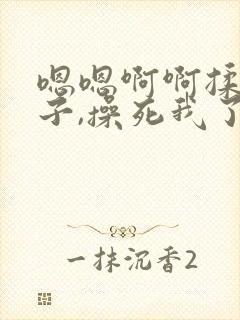 嗯嗯啊啊揉
子,操死我了
一抹沉香2